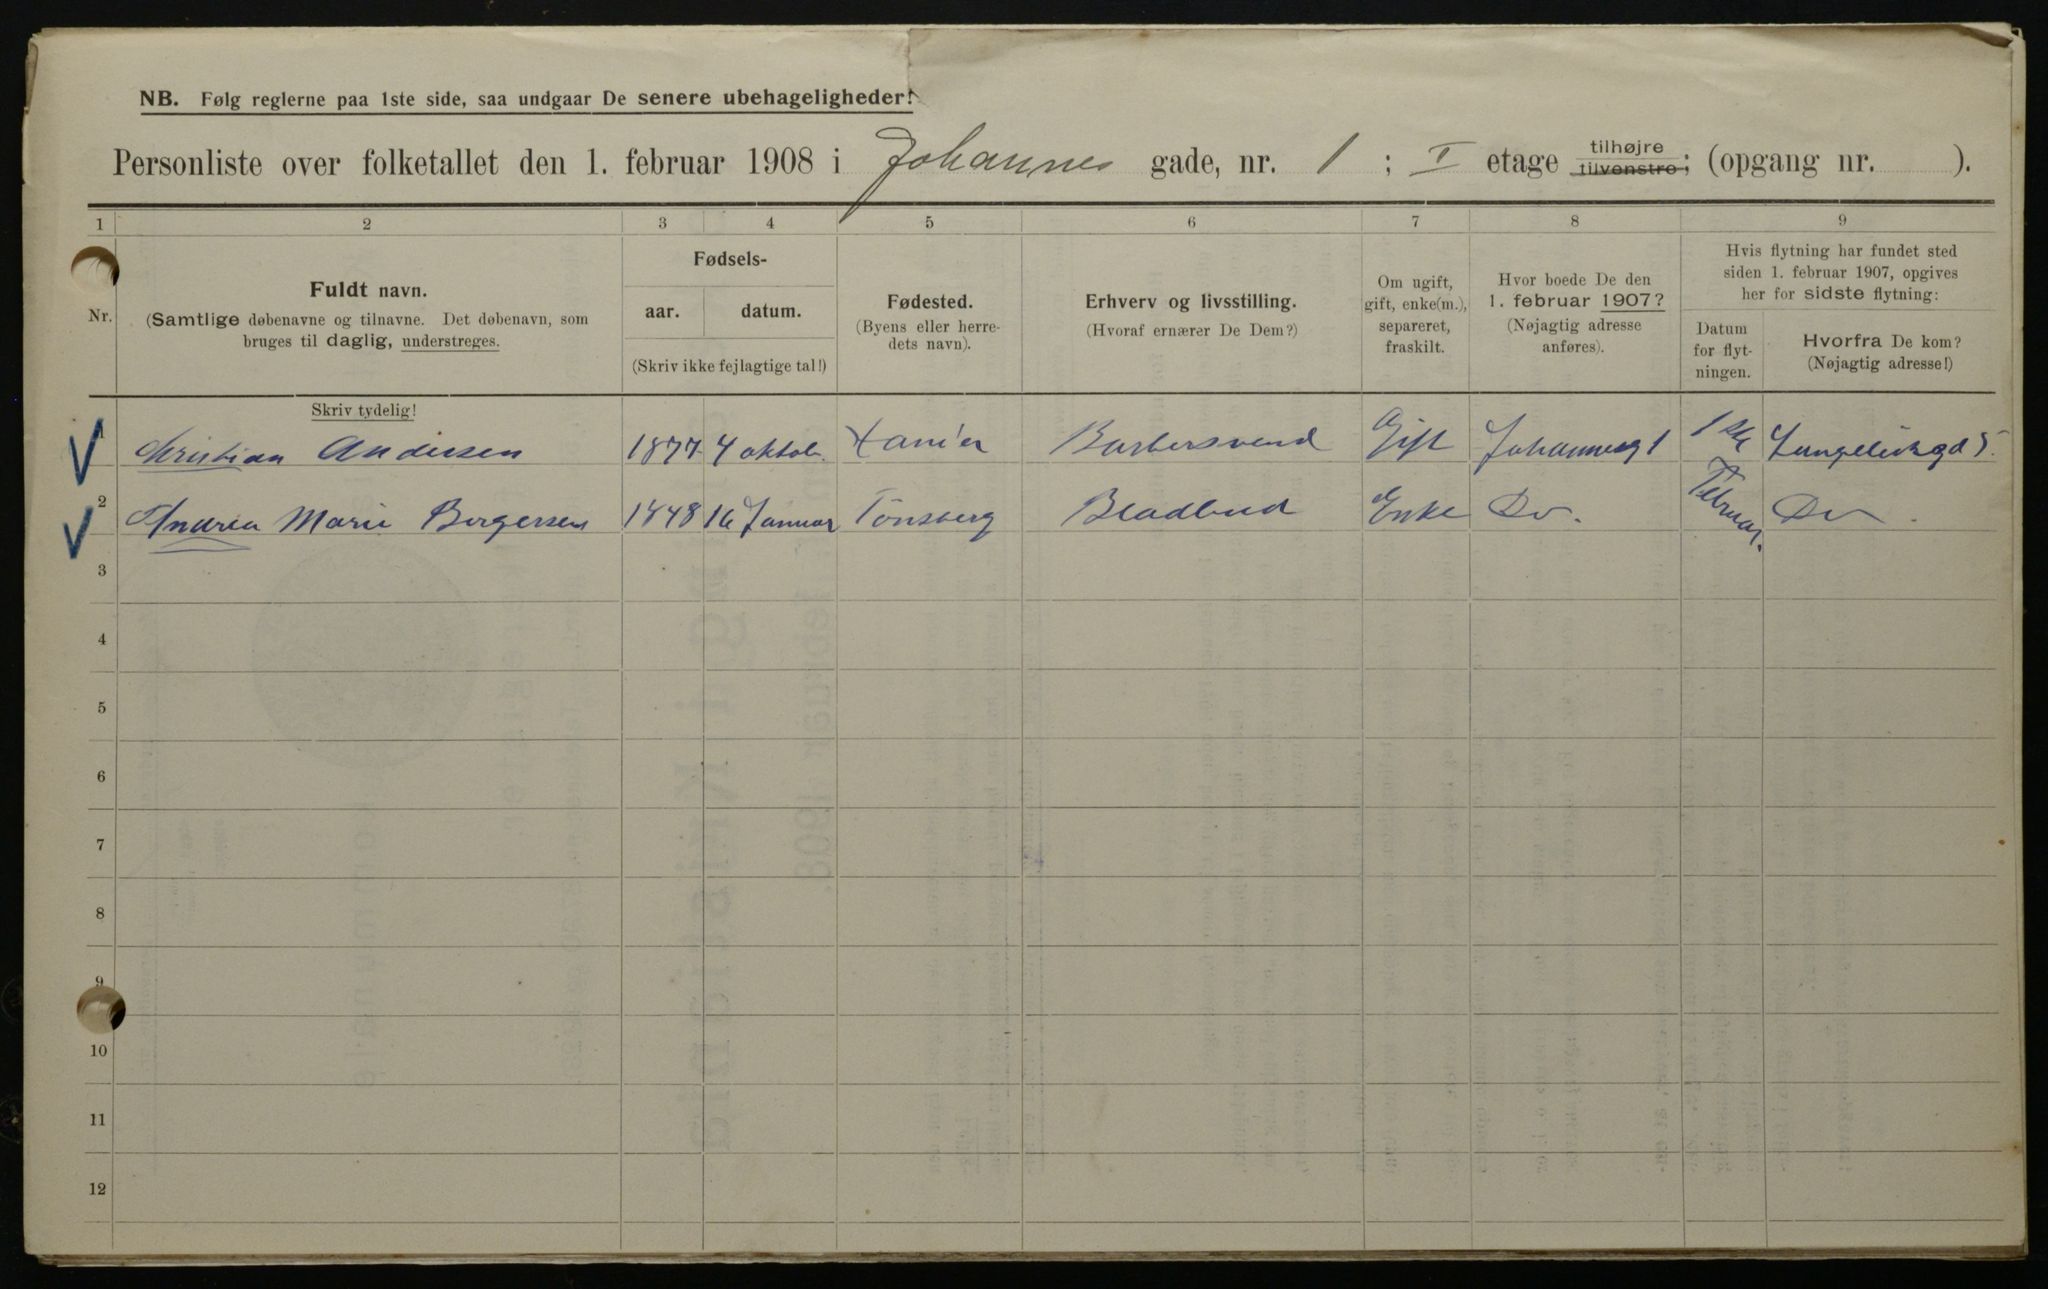 NB. Følg reglerne paa 1ste side, saa undgaar De senere ubehageligheder!
Personliste over folketallet den 1. februar 1908 i Johannes gade, nr. 1 ; I etage tilhøjre tilvenstre; (opgang nr. ).
1 2 3 4 5 6 7 8 9
Nr.
Fuldt navn.
(Samtlige døbenavne og tilnavne. Det døbenavn, som
bruges til daglig, understreges.
Skriv tydelig!
Fødsels-
aar. datum.
(Skriv ikke fejlagtige tal!)
Fødested.
(Byens eller herre-
dets navn).
Erhverv og livsstilling.
(Hvoraf ernærer De Dem?)
Om ugift,
gift, enke(m.),
separeret,
fraskilt.
Hvor boede De den
1. februar 1907?
(Nøjagtig adresse
anføres).
Hvis flytning har fundet sted
siden 1. februar 1907, opgives
her for sidste flytning:
Datum
for flyt-
ningen.
Hvorfra De kom?
(Nøjagtig adresse!)
1 Christian Andersen 1877 4 oktob. Barbersvend Gift Johannesg 1 1ste
2 Andrea Marie Borgersen 1848 16 Januar Tönsberg Bladbud Enke Do. Februar. Do.
3
4
5
6
7
8
9
10
11
12